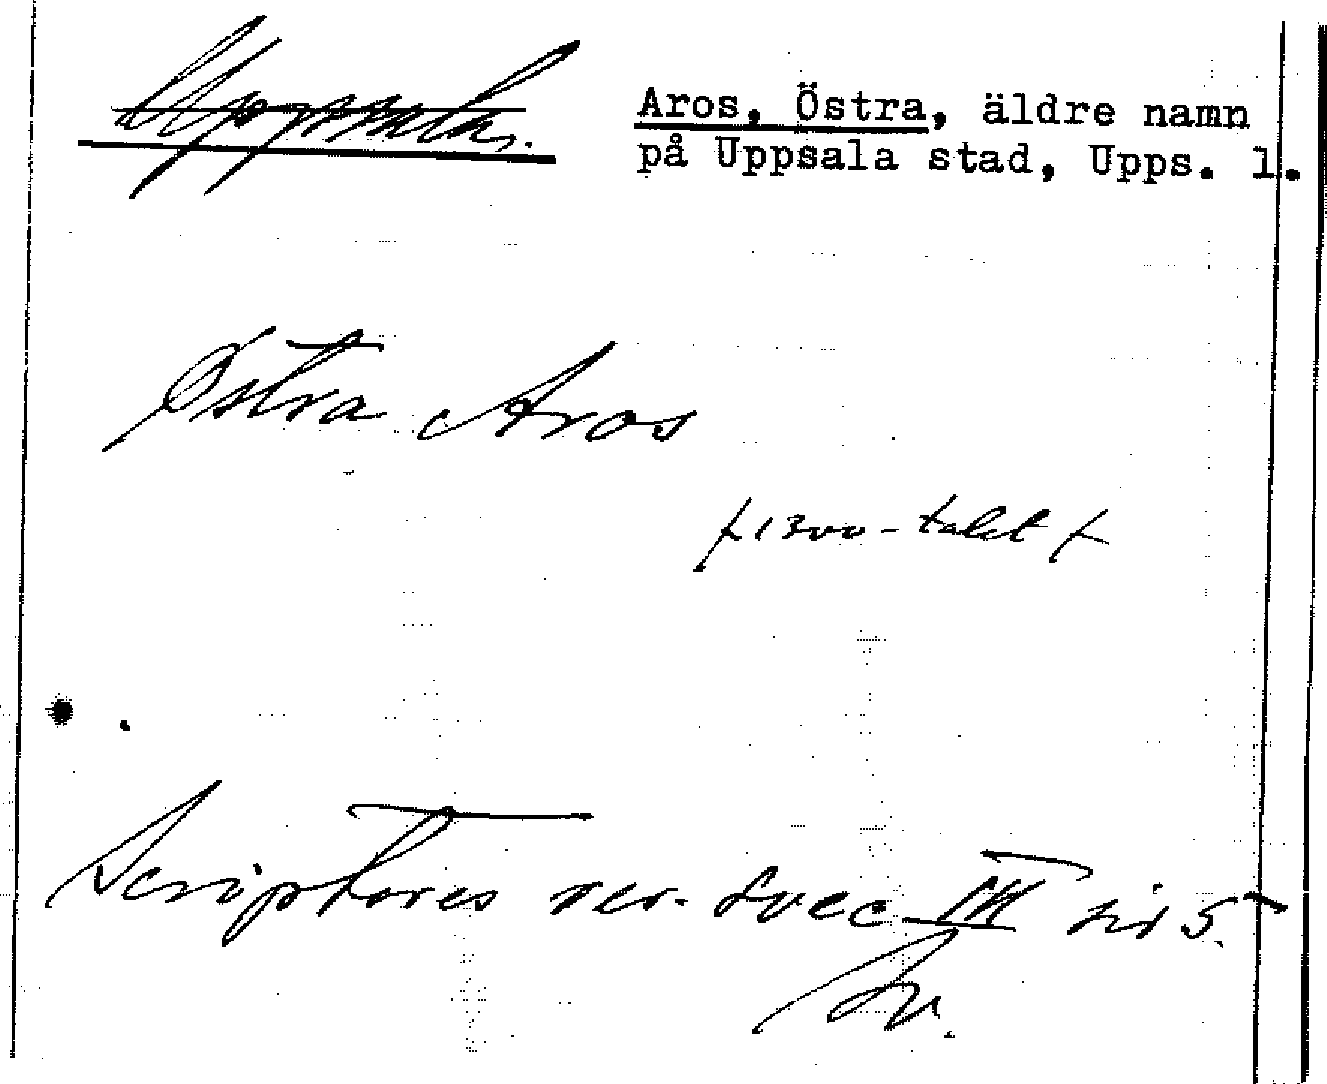 Uppsala.
Aros, Östra, äldre namn
på Uppsala stad, Upps. l.
Østra Aros
1300-talet
Scriptores rer. Svec III sid 5.